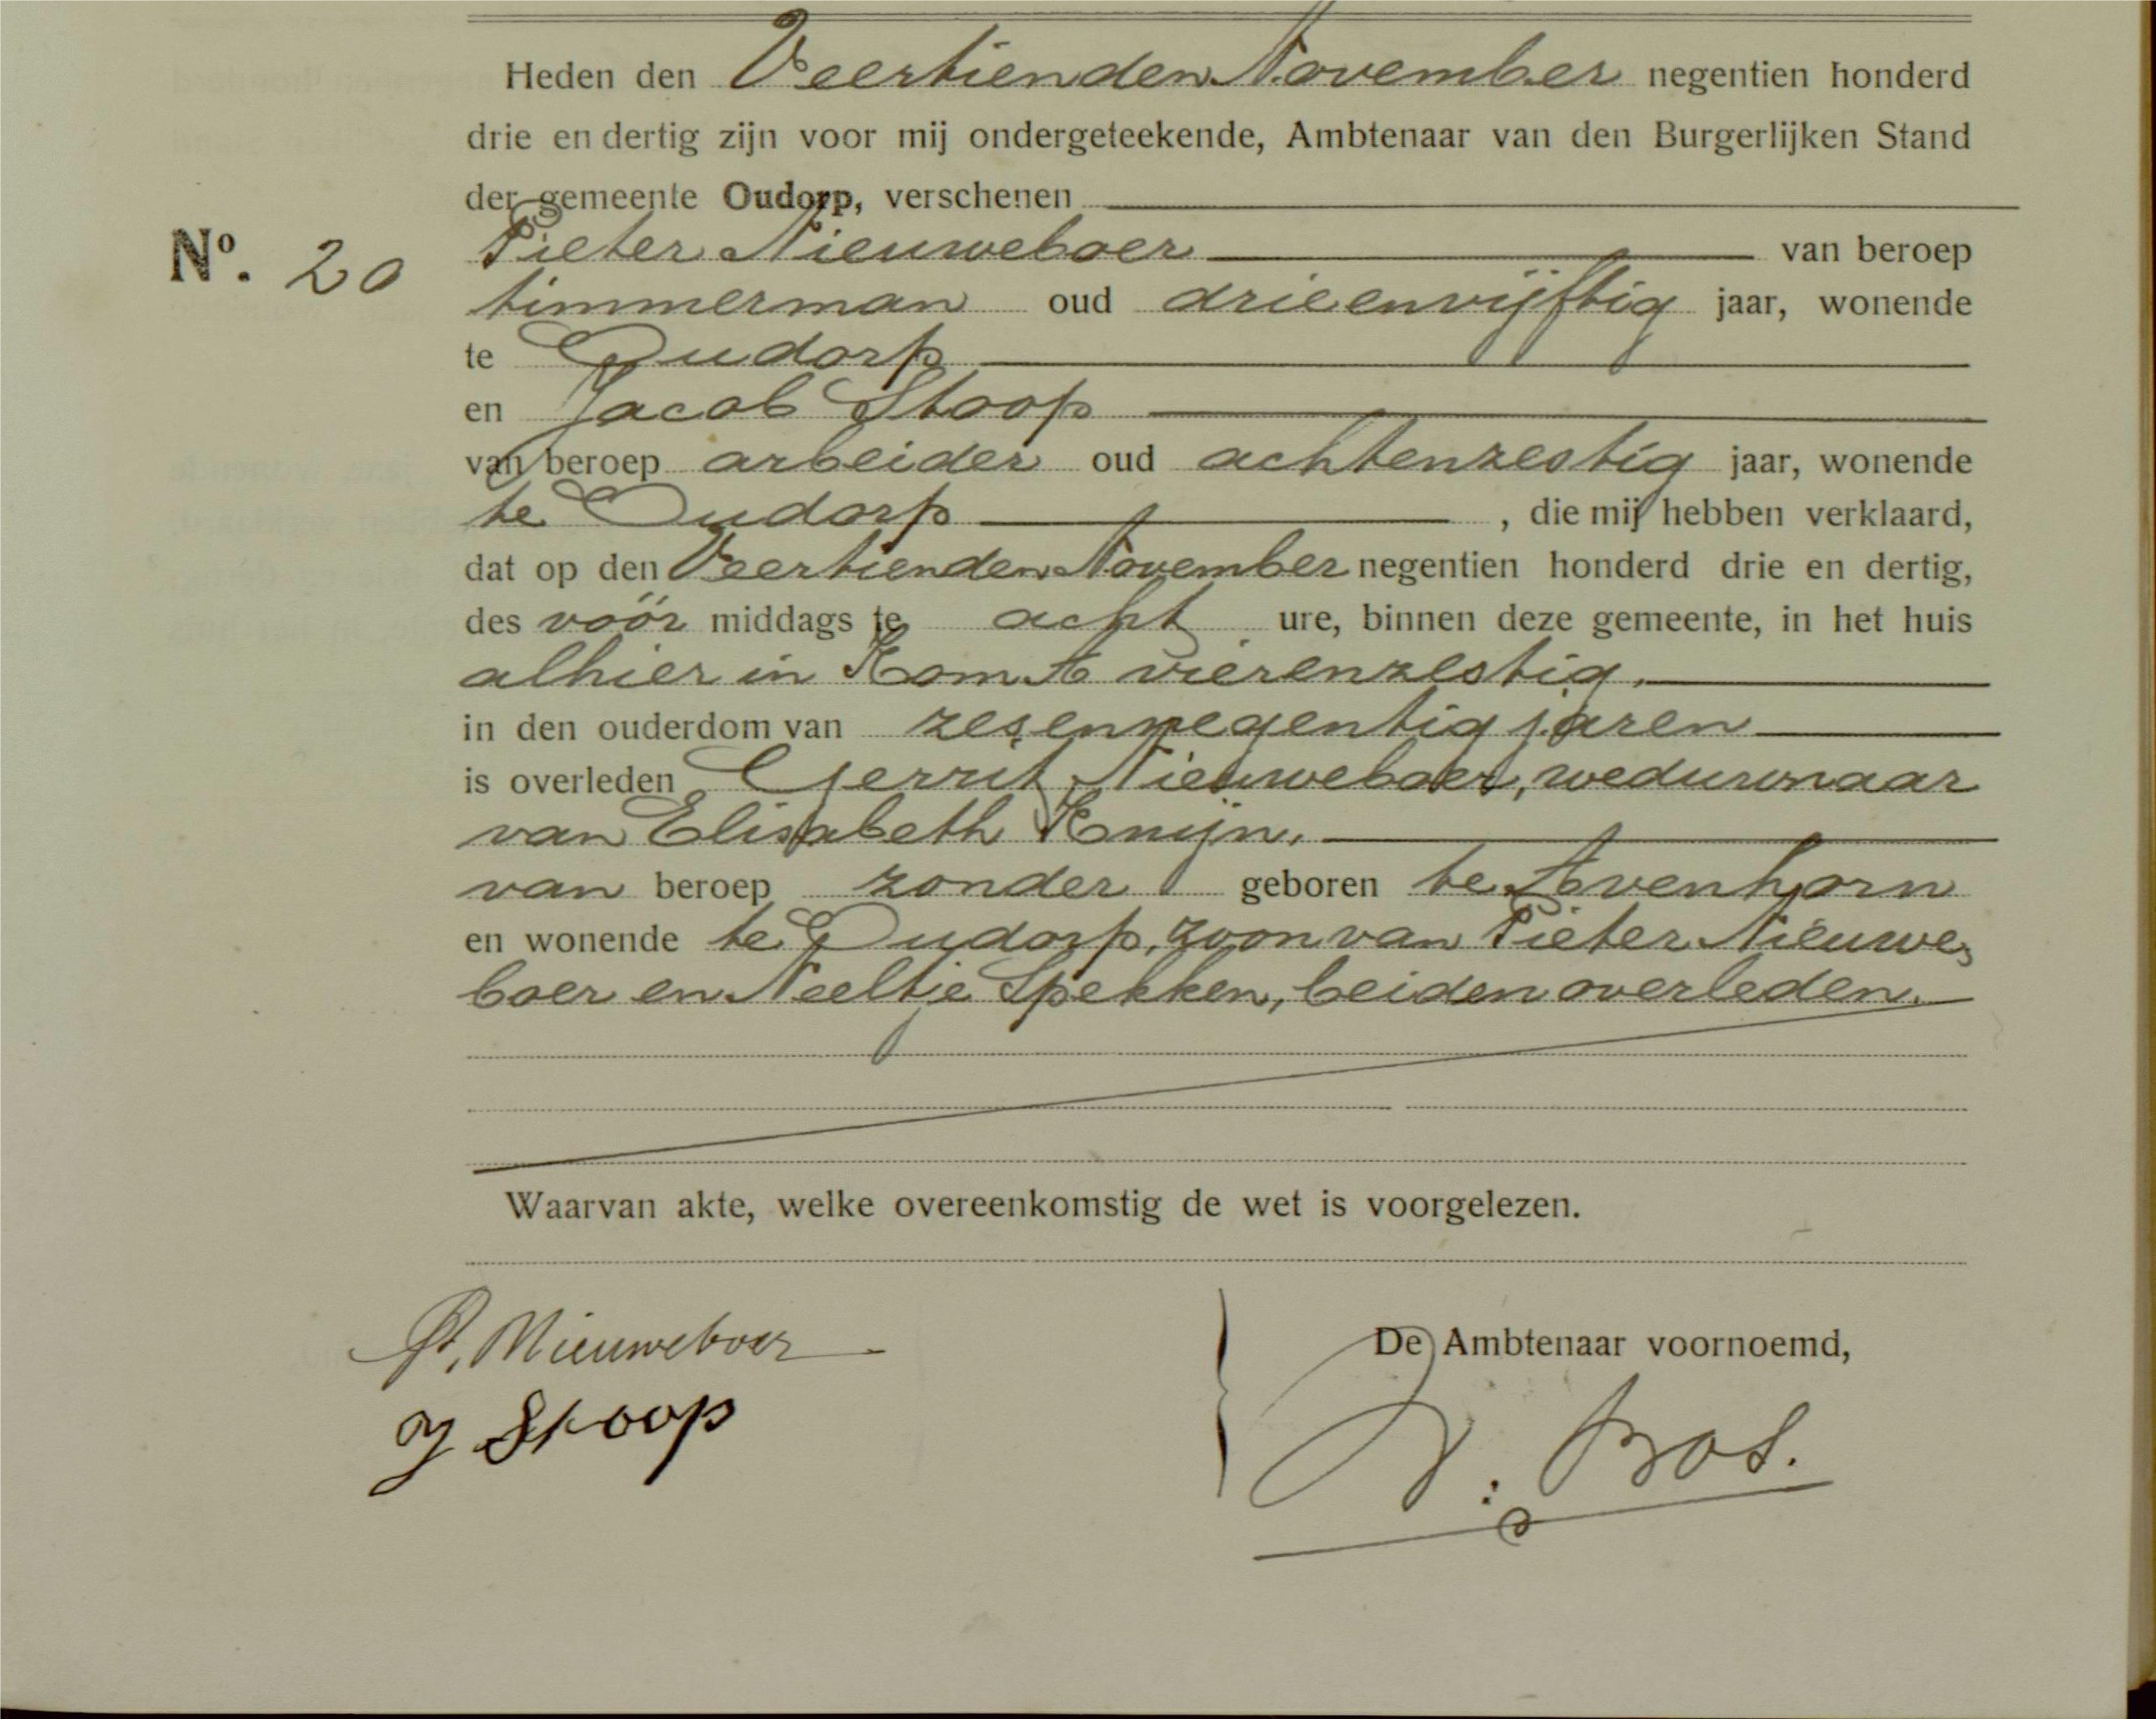 Heden den Veertienden November negentien honderd
drie en dertig zijn voor mij ondergeteekende, Ambtenaar van den Burgerlijken Stand
der gemeente Oudorp, verschenen
No. 20
Pieter Nieuweboer van beroep
timmerman oud drieenvijftig jaar, wonende
te Oudorp
en Jacob Stoop
van beroep arbeider oud achtenzestig jaar, wonende
te Oudorp , die mij hebben verklaard,
dat op den Veertienden November negentien honderd drie en dertig,
des voór middags te acht ure, binnen deze gemeente, in het huis
alhier in Kom A vierenzestig.
in den ouderdom van zesennegentig jaren
is overleden Gerrit Nieuweboer, weduwnaar
van Elisabeth Knijn.
van beroep zonder geboren te Avenhorn
en wonende te Oudorp, zoon van Pieter Nieuwe-
boer en Neeltje Spekken, beiden overleden.
Waarvan akte, welke overeenkomstig de wet is voorgelezen.
P. Nieuweboer
J Stoop
De Ambtenaar voornoemd,
Bos.